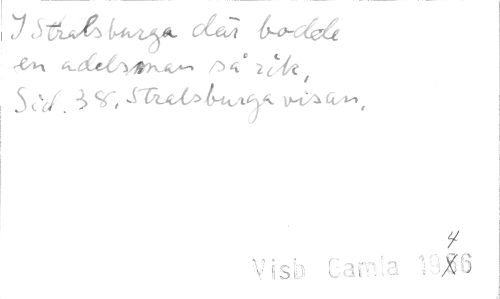 I Stralsburga där bodde
en adelsman så rik,
Sid. 38. Stralsburgavisan.
4
Visb Gamla 1966